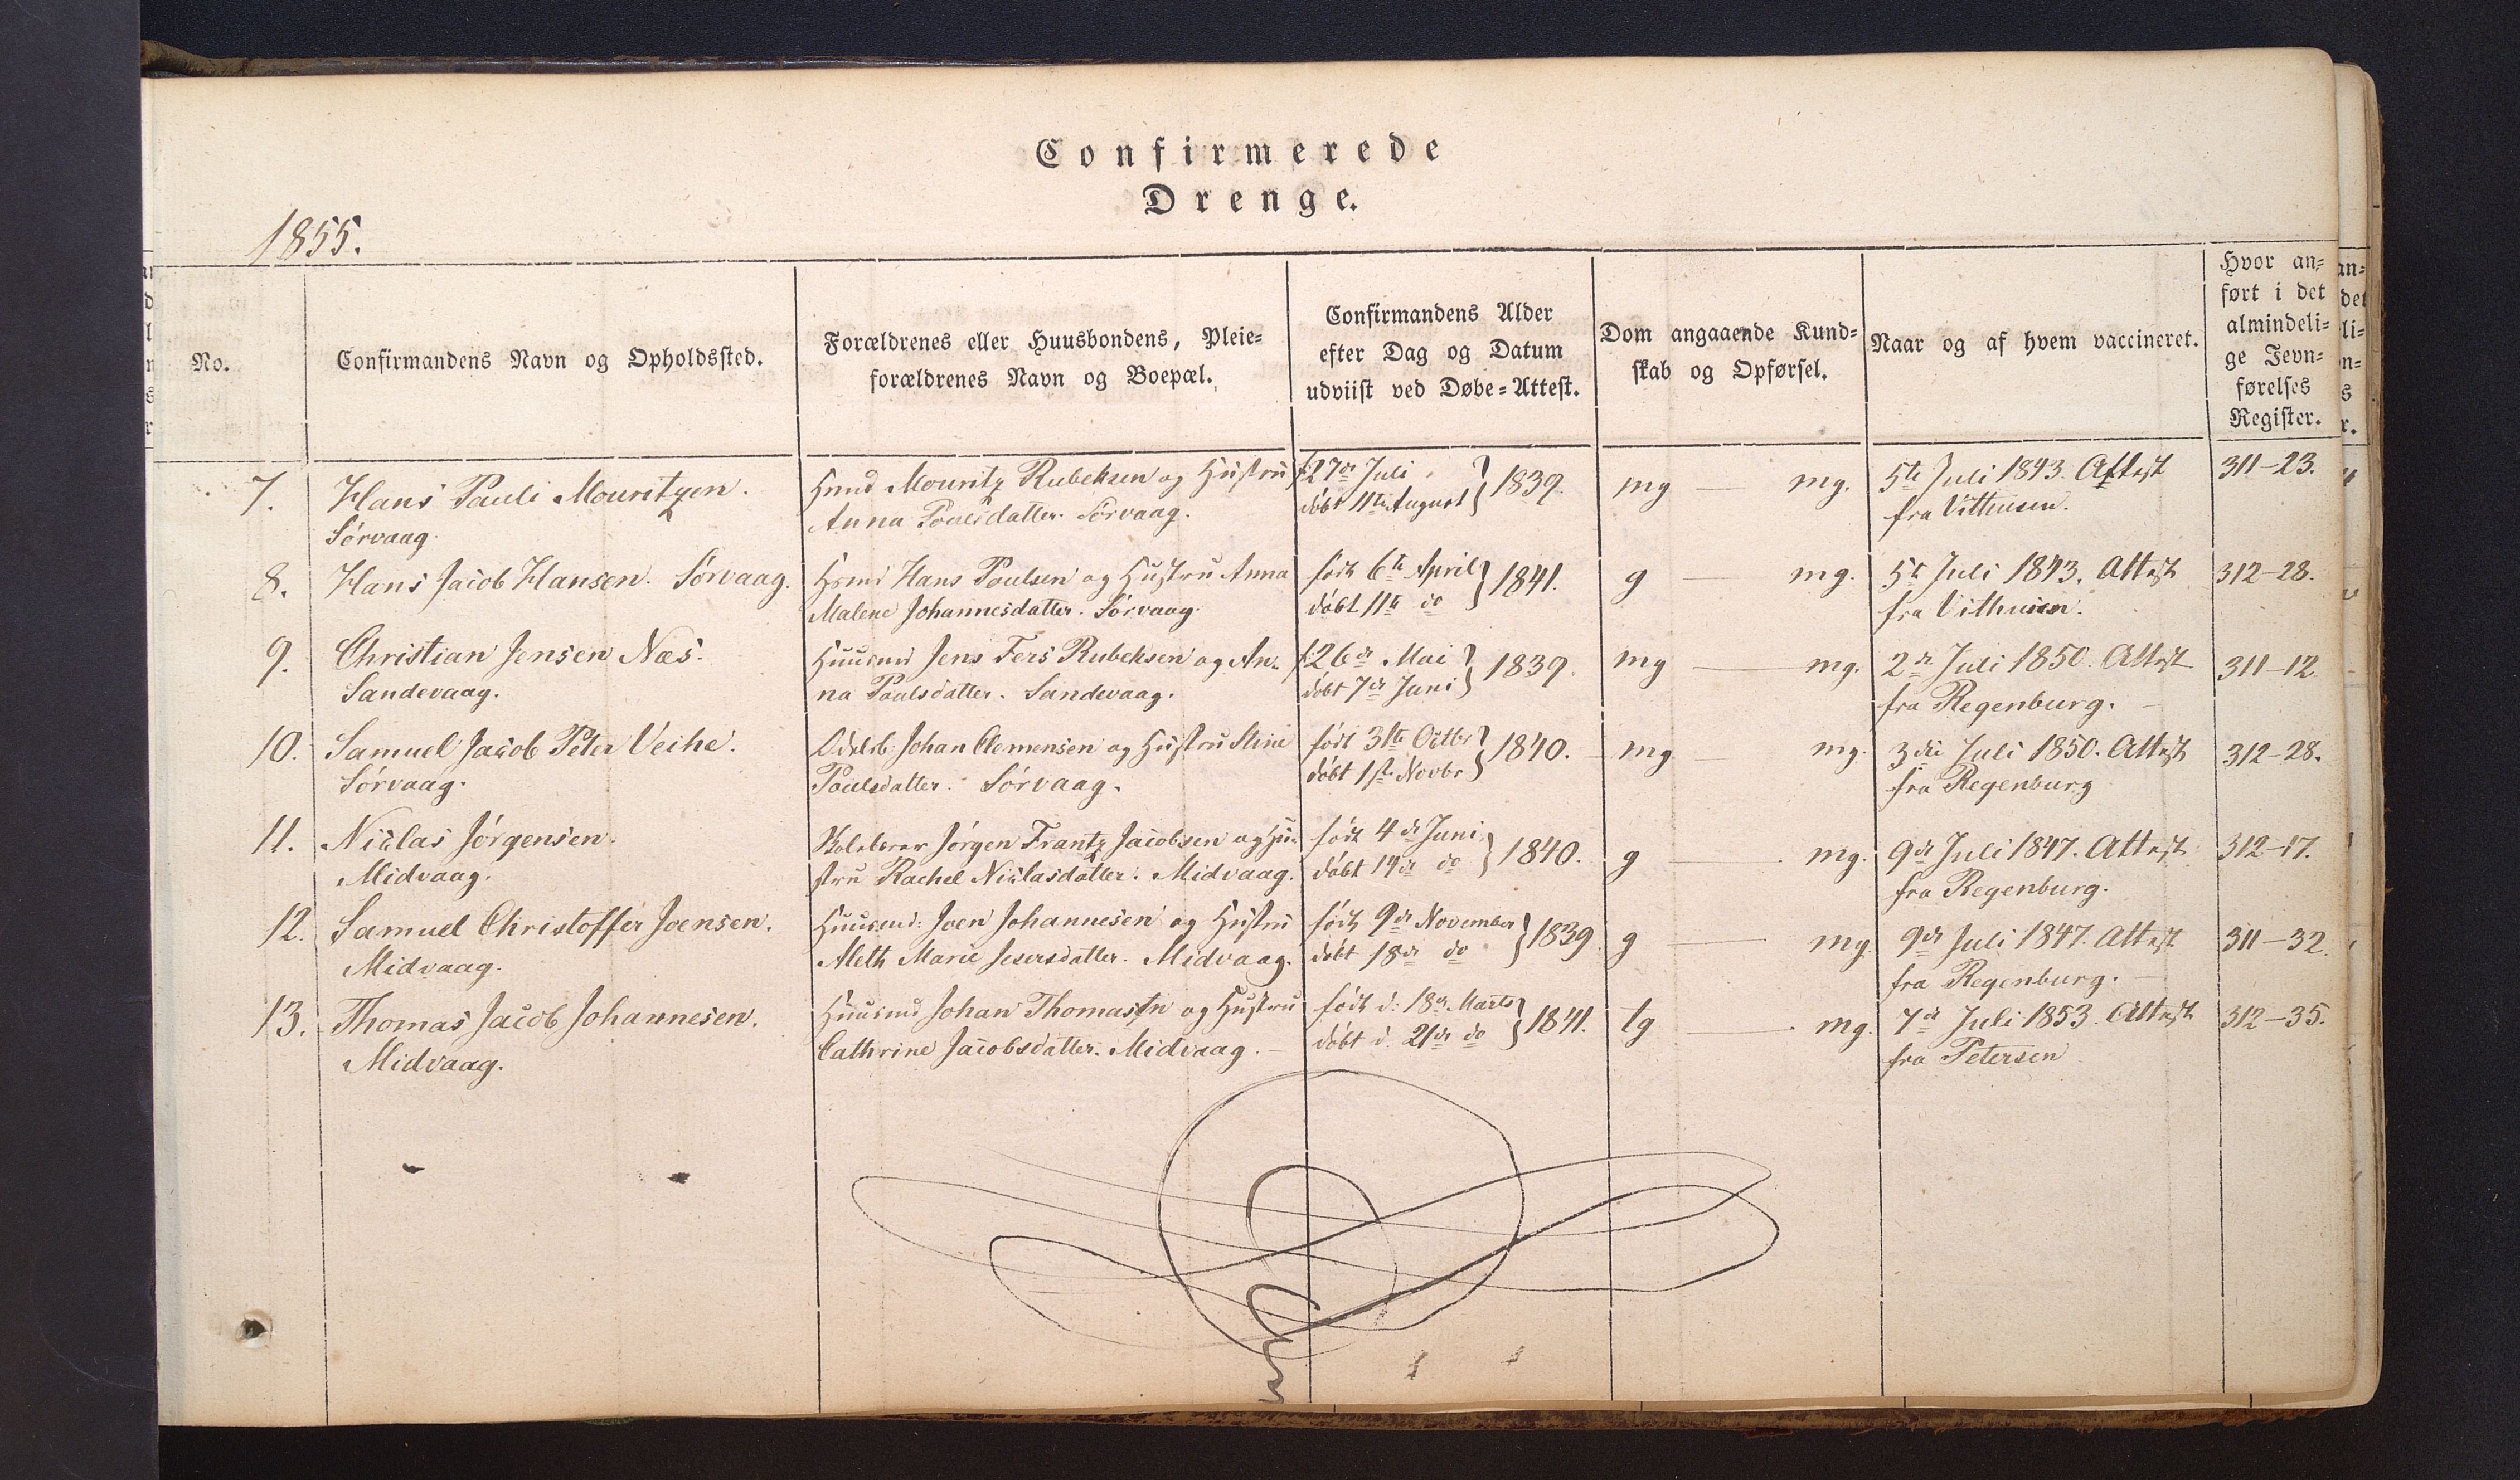 Confirmerede
Drenge.
1855.
No.
Confirmandens Navn og Opholdssted.
Forældrenes eller Huusbondens, Pleie=
forældrenes Navn og Boepæl.
Confirmandens Alder
efter Dag og Datum
udviist ved Døbe=Attest.
Dom angaaende Kund=
skab og Opførsel.
Naar og af hvem vaccineret.
Hvor an=
ført i det
almindeli=
ge Jevn=
førelses
Register.
7. Hans Pauli Mouritzen.
Sørvaag.
Mouritz Rubeksen og Hustru
Anna Poulsdatter. Sørvaag.
f. 27de Juli
døbt 11te August } 1839.
mg — mg.
5te Juli 1843. Attest
fra Vithusen.
311-23.
8. Hans Jacob Hansen. Sørvaag.
Hans Poulsen og Hustru Anna
Malene Johannesdatter. Sørvaag.
født 6te April
døbt 11te do } 1841.
g — mg.
5te Juli 1843. Attest
fra Vithusen.
312-28.
9. Christian Jensen Næs.
Sandevaag.
Huusmd Jens Fers Rubeksen og An-
na Poulsdatter. Sandevaag.
f. 26de Mai
døbt 7de Juni } 1839.
mg — mg.
2den Juli 1850. Attest
fra Regenburg.
311-12.
10. Samuel Jacob Peter Veihe.
Sørvaag.
Odelsb: Johan Clemensen og Hustru Stine
Poulsdatter. Sørvaag.
født 31te Octbr
døbt 1ste Novbr } 1840.
mg — mg.
3die Juli 1850. Attest
fra Regenburg
312-28.
11. Niclas Jørgensen.
Midvaag.
Skolelærer Jørgen Frantz Jacobsen og Hu-
stru Rachel Niclasdatter. Midvaag.
født 4de Juni
døbt 14de do } 1840.
g — mg.
9de Juli 1847. Attest
fra Regenburg.
312-17.
12. Samuel Christoffer Joensen.
Midvaag.
Huusmd: Joen Johannesen og Hustru
Aleth Marie Jesersdatter. Midvaag.
født 9de November
døbt 18de do } 1839.
g — mg.
9de Juli 1847. Attest
fra Regenburg.
311-32.
13. Thomas Jacob Johannesen.
Midvaag.
Huusmd Johan Thomassen og Hustru
Cathrine Jacobsdatter. Midvaag.
født d: 18de Marts
døbt d. 21de do } 1841.
tg — mg.
7de Juli 1853. Attest
fra Petersen
312-35.